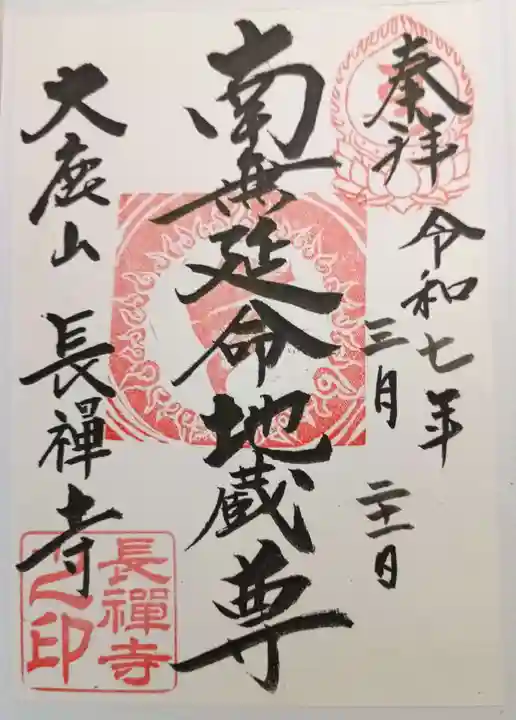 奉拝
令和七年
三月 二十一日
南無延命地蔵尊
大鹿山 長禅寺
長禪寺
之印